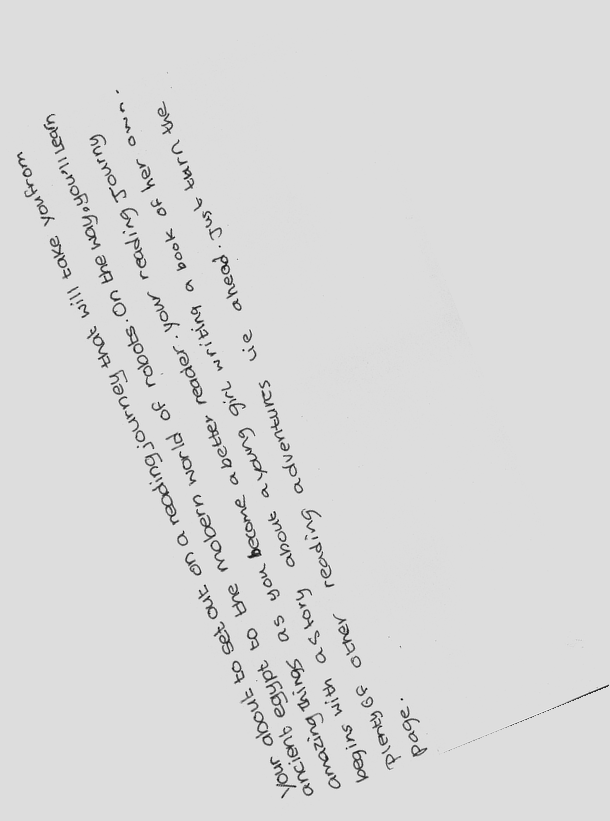 Your about to set out on a reading journey that will take you from
ancient egypt to the modern world of robots. On the way, you'll learn
amazing things as you become a better reader. your reading Journy
begins with a story about a young girl writing a book of her own.
Plenty of other reading adventures lie ahead. Just turn the
page.